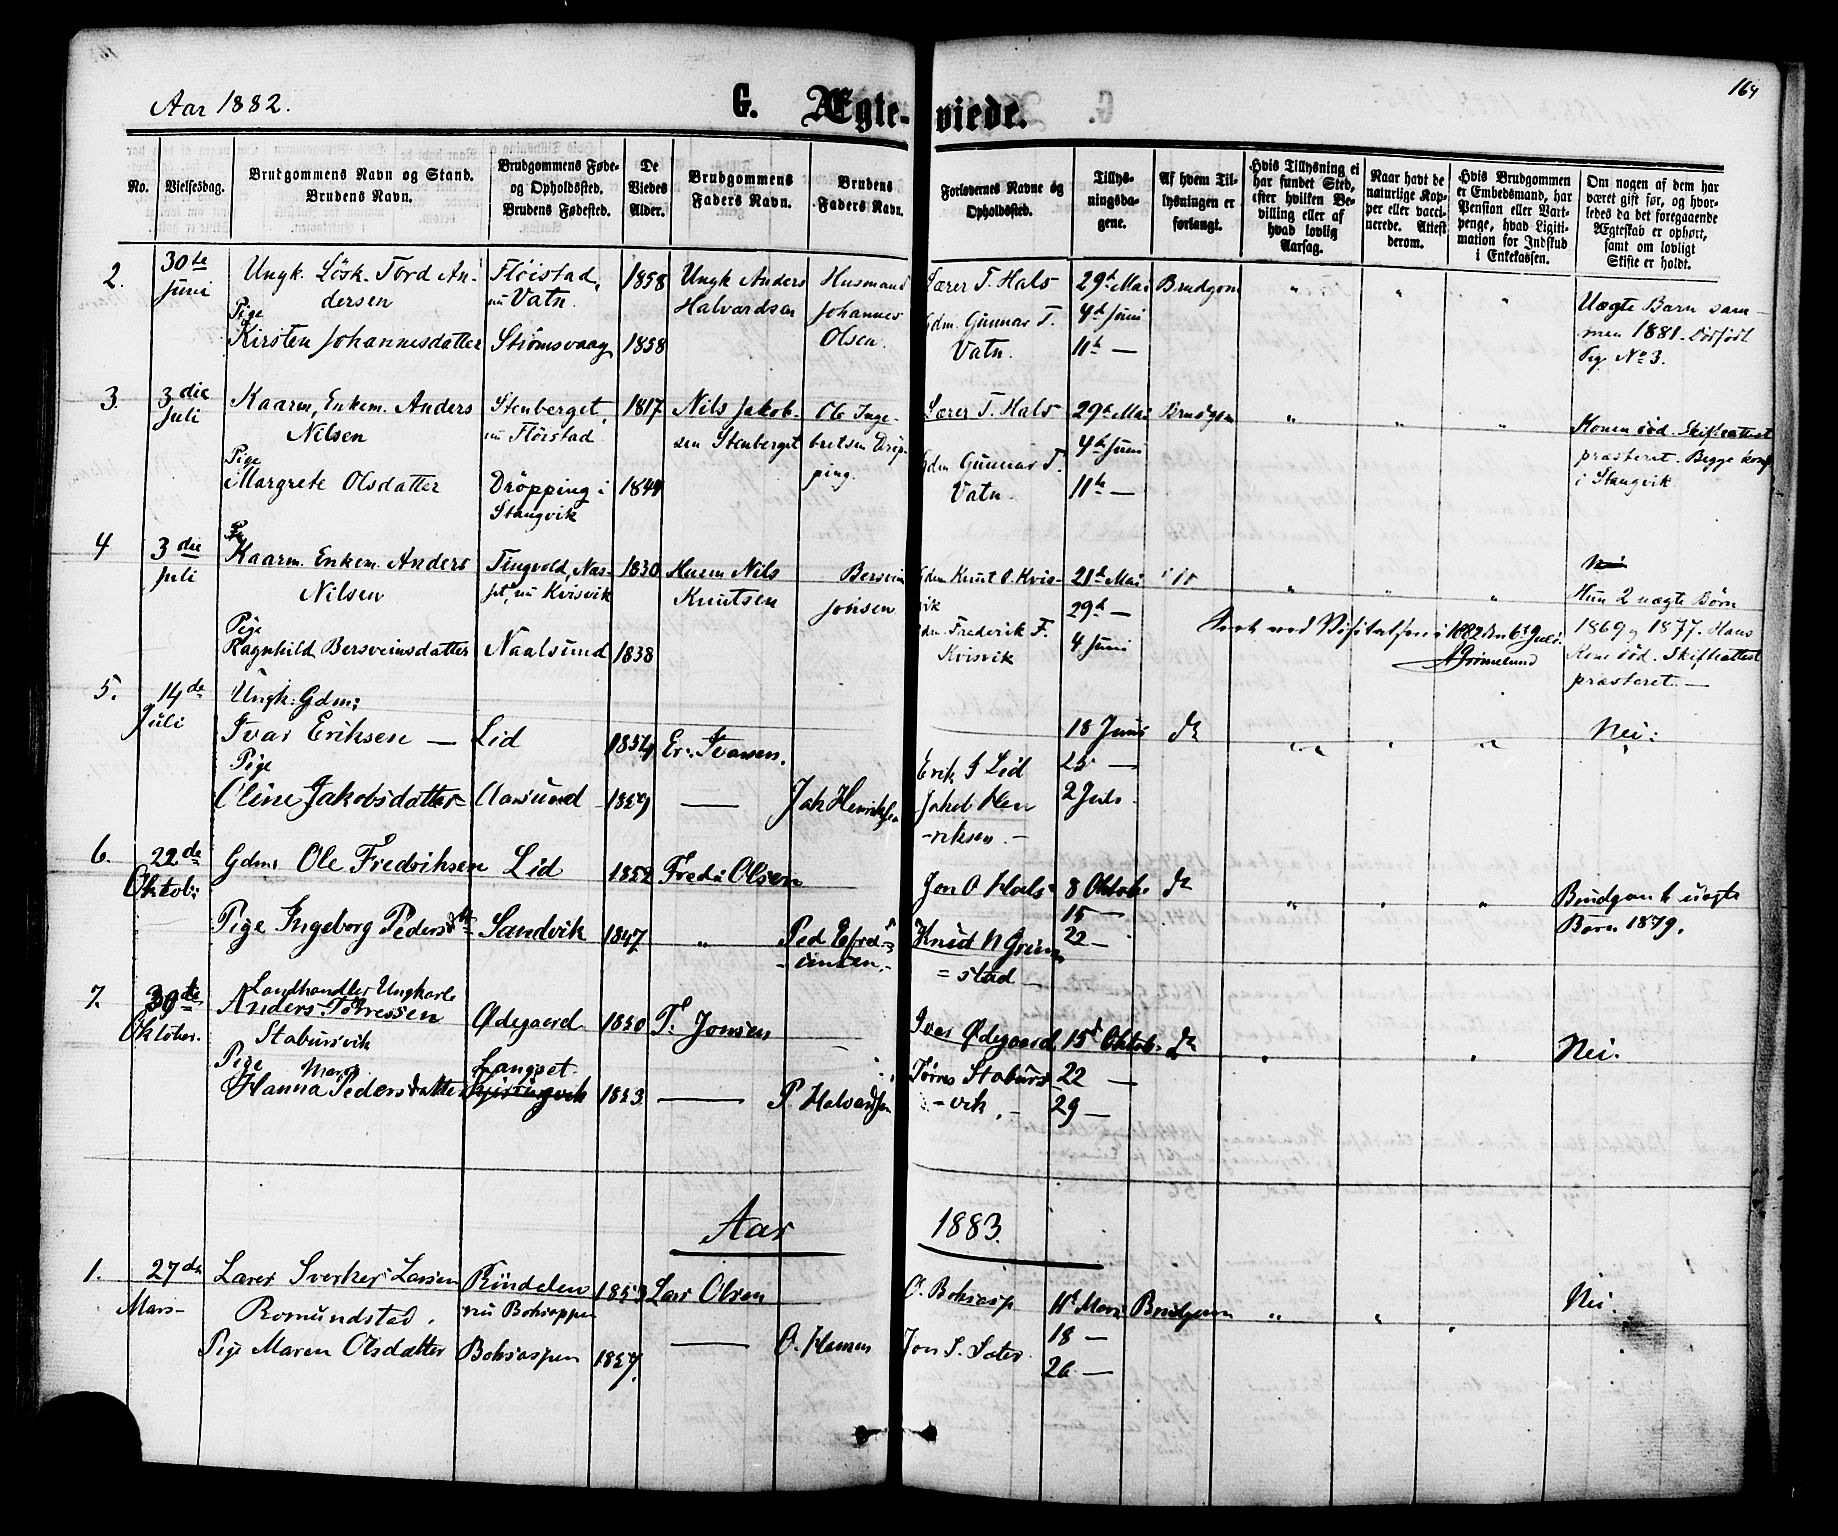 164
Aar 1882.
G. Ægte-viede.
No.
Vielsesdag.
Brudgommens Navn og Stand.
Brudens Navn.
Brudgommens Føde-
og Opholdssted.
Brudens Fødested.
De
Viedes
Alder.
Brudgommens
Faders Navn.
Brudens
Faders Navn.
Forlovernes Navne og
Opholdssted.
Tillys-
ningsda-
gene.
Af hvem Til-
lysningen er
forlangt.
Hvis Tillysning ei
har fundet Sted,
efter hvilken Be-
villing eller af
hvad lovlig
Aarsag.
Naar havt de
naturlige Kop-
per eller vacci-
nerede. Attest
derom.
Hvis Brudgommen
er Embedsmand, har
Pension eller Vart-
penge, hvad Legiti-
mation for Indskud
i Enkekassen.
Om nogen af dem har
været gift før, og hvor-
ledes da det foregaaende
Ægteskab er ophørt,
samt om lovligt
Skifte er holdt.
2.
30te
Juni
Ungk. Løsk. Tord An-
dersen
Pige
Kirsten Johannesdatter
Fløistad,
nu Vatn.
Strømsvaag
1858
1858
Ungk Anders
Halvardsen
Husmand
Johannes
Olsen.
Lærer T. Hals
Gdm. Gunnar T.
Vatn.
29de Mai
4de Juni
11te —
Brudgom
" " "
Uægte Barn sam-
men 1881. Dødfødt
Pig. No 3.
3.
3die
Juli
Kaarm, Enkem. Anders
Nilsen
Pige
Margrete Olsdatter
Stenberget,
nu Fløistad
Drøpping i
Stangvik
1817
1844
Nils Jakob-
sen Stenberget
Ole Inge-
bretsen Drøp-
ping.
Lærer T. Hals
Gdm Gunnar T.
Vatn.
29de Mai
4de Juni
11te —
Brudgom
" " "
Konen død. Skifteattest
præsteret. Begge konf
i Stangvik.
4
3die
Juli
Kaarm. Enkem. Anders
Nilsen
Pige
Ragnhild Bersveinsdatter
Tingvold, Næs-
set, nu Kvisvik
Naalsund
1830
1838
Husm Nils
Knutsen
Bersvein
Jonsen
Gdm Knut O. Kvis-
vik
Gdm. Frederik F.
Kvisvik
21de Mai
29de —
4 Juni
" " "
Seet ved Visitatsen i 1882 den 6te Juli.
Grimelund
Hun 2 uægte Børn
1869 og 1877. Hans
Kone død. Skifteattest
præsteret. —
5.
14de
Juli
Ungk. Gdm:
Ivar Eriksen —
Pige
Oline Jakobsdatter
Lid
Aarsund
1854
1859
Er. Ivarsen.
—
Jak Henriksen
Erik I Lid
Jakob Hen
-riksen —
18 Juni
25 —
2 Juli
do
" " "
Nei:
6.
22de
Oktob:
Gdm: Ole Fredriksen
Pige Ingeborg Pedersdtr
Lid
Sandvik
1852
1847
Fredr: Olsen
"
Jon O Hals
Knud N Grim
= stad —
8 Oktob.
15 —
22 —
do
" " "
Brudgom 1 uægte
Barn 1879.
7.
30te
Oktober.
Landhandler Ungkarl
Anders Tørressen
Stabursvik
Pige
Hanna Pedersdatter
Ødegaard
Langset
1850
1853
T. Jonsen
—
P. Halvardsen
Ivar Ødegaard
Tørres Stoburs
-vik. —
15de Oktob.
22 —
29 —
do
Nei.
Aar 1883.
1.
27de
Mars
Lærer Sverker Larsen
Romundstad.
Pige Maren Olsdatter
Rindalen
nu Boksaspen
Boksaspen
1853
1857.
Lars Olsen
—
O. Hansen
O. Boksasp
Jon S. Sæter
11te Mars
18 —
26 —
Brudgom
" " "
Nei.